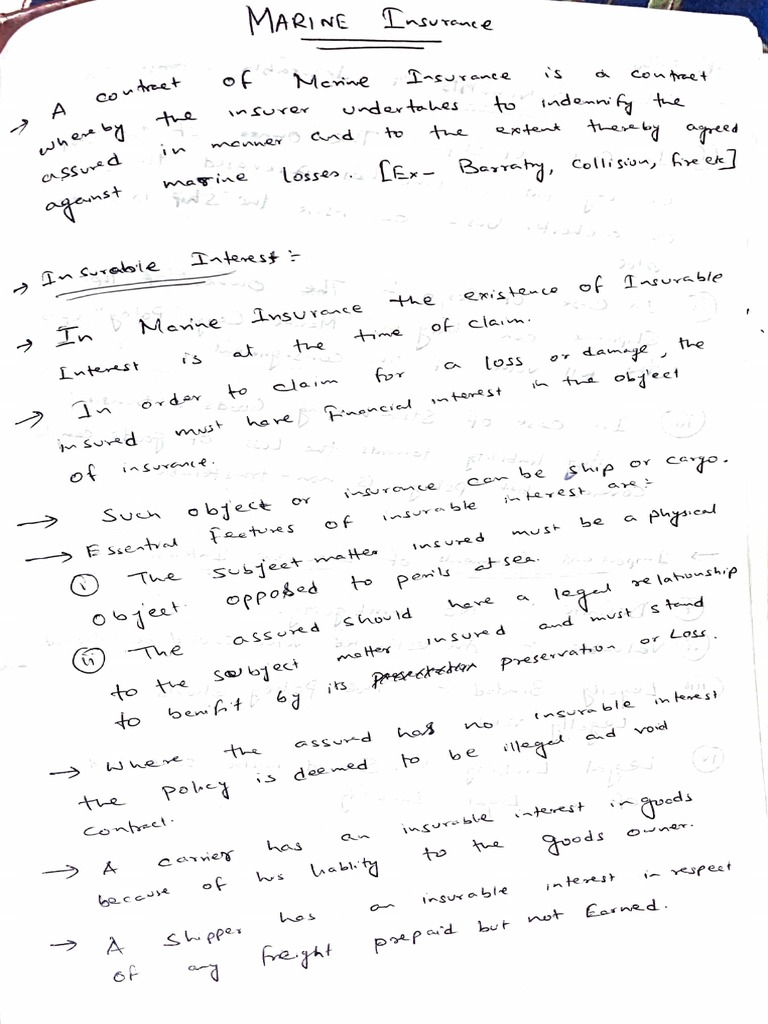 MARINE Insurance
→ A contract of Marine Insurance is a contract
whereby the insurer undertakes to indemnify the
assured in manner and to the extent thereby agreed
against marine losses. [Ex- Barratry, Collision, fire etc]
→ Insurable Interest:-
→ In Marine Insurance the existence of Insurable
Interest is at the time of claim.
→ In order to claim for a loss or damage, the
insured must have financial interest in the object
of insurance.
→ Such object or insurance can be ship or cargo.
→ Essential features of insurable interest are:-
(i) The subject matter insured must be a physical
object opposed to perils at sea.
(ii) The assured should have a legal relationship
to the subject matter insured and must stand
to benifit by its preservation or Loss.
→ Where the assured has no insurable interest
the policy is deemed to be illegal and void
contract.
→ A carrier has an insurable interest in goods
because of his liablity to the goods owner.
→ A shipper has an insurable interest in respect
of any freight prepaid but not Earned.